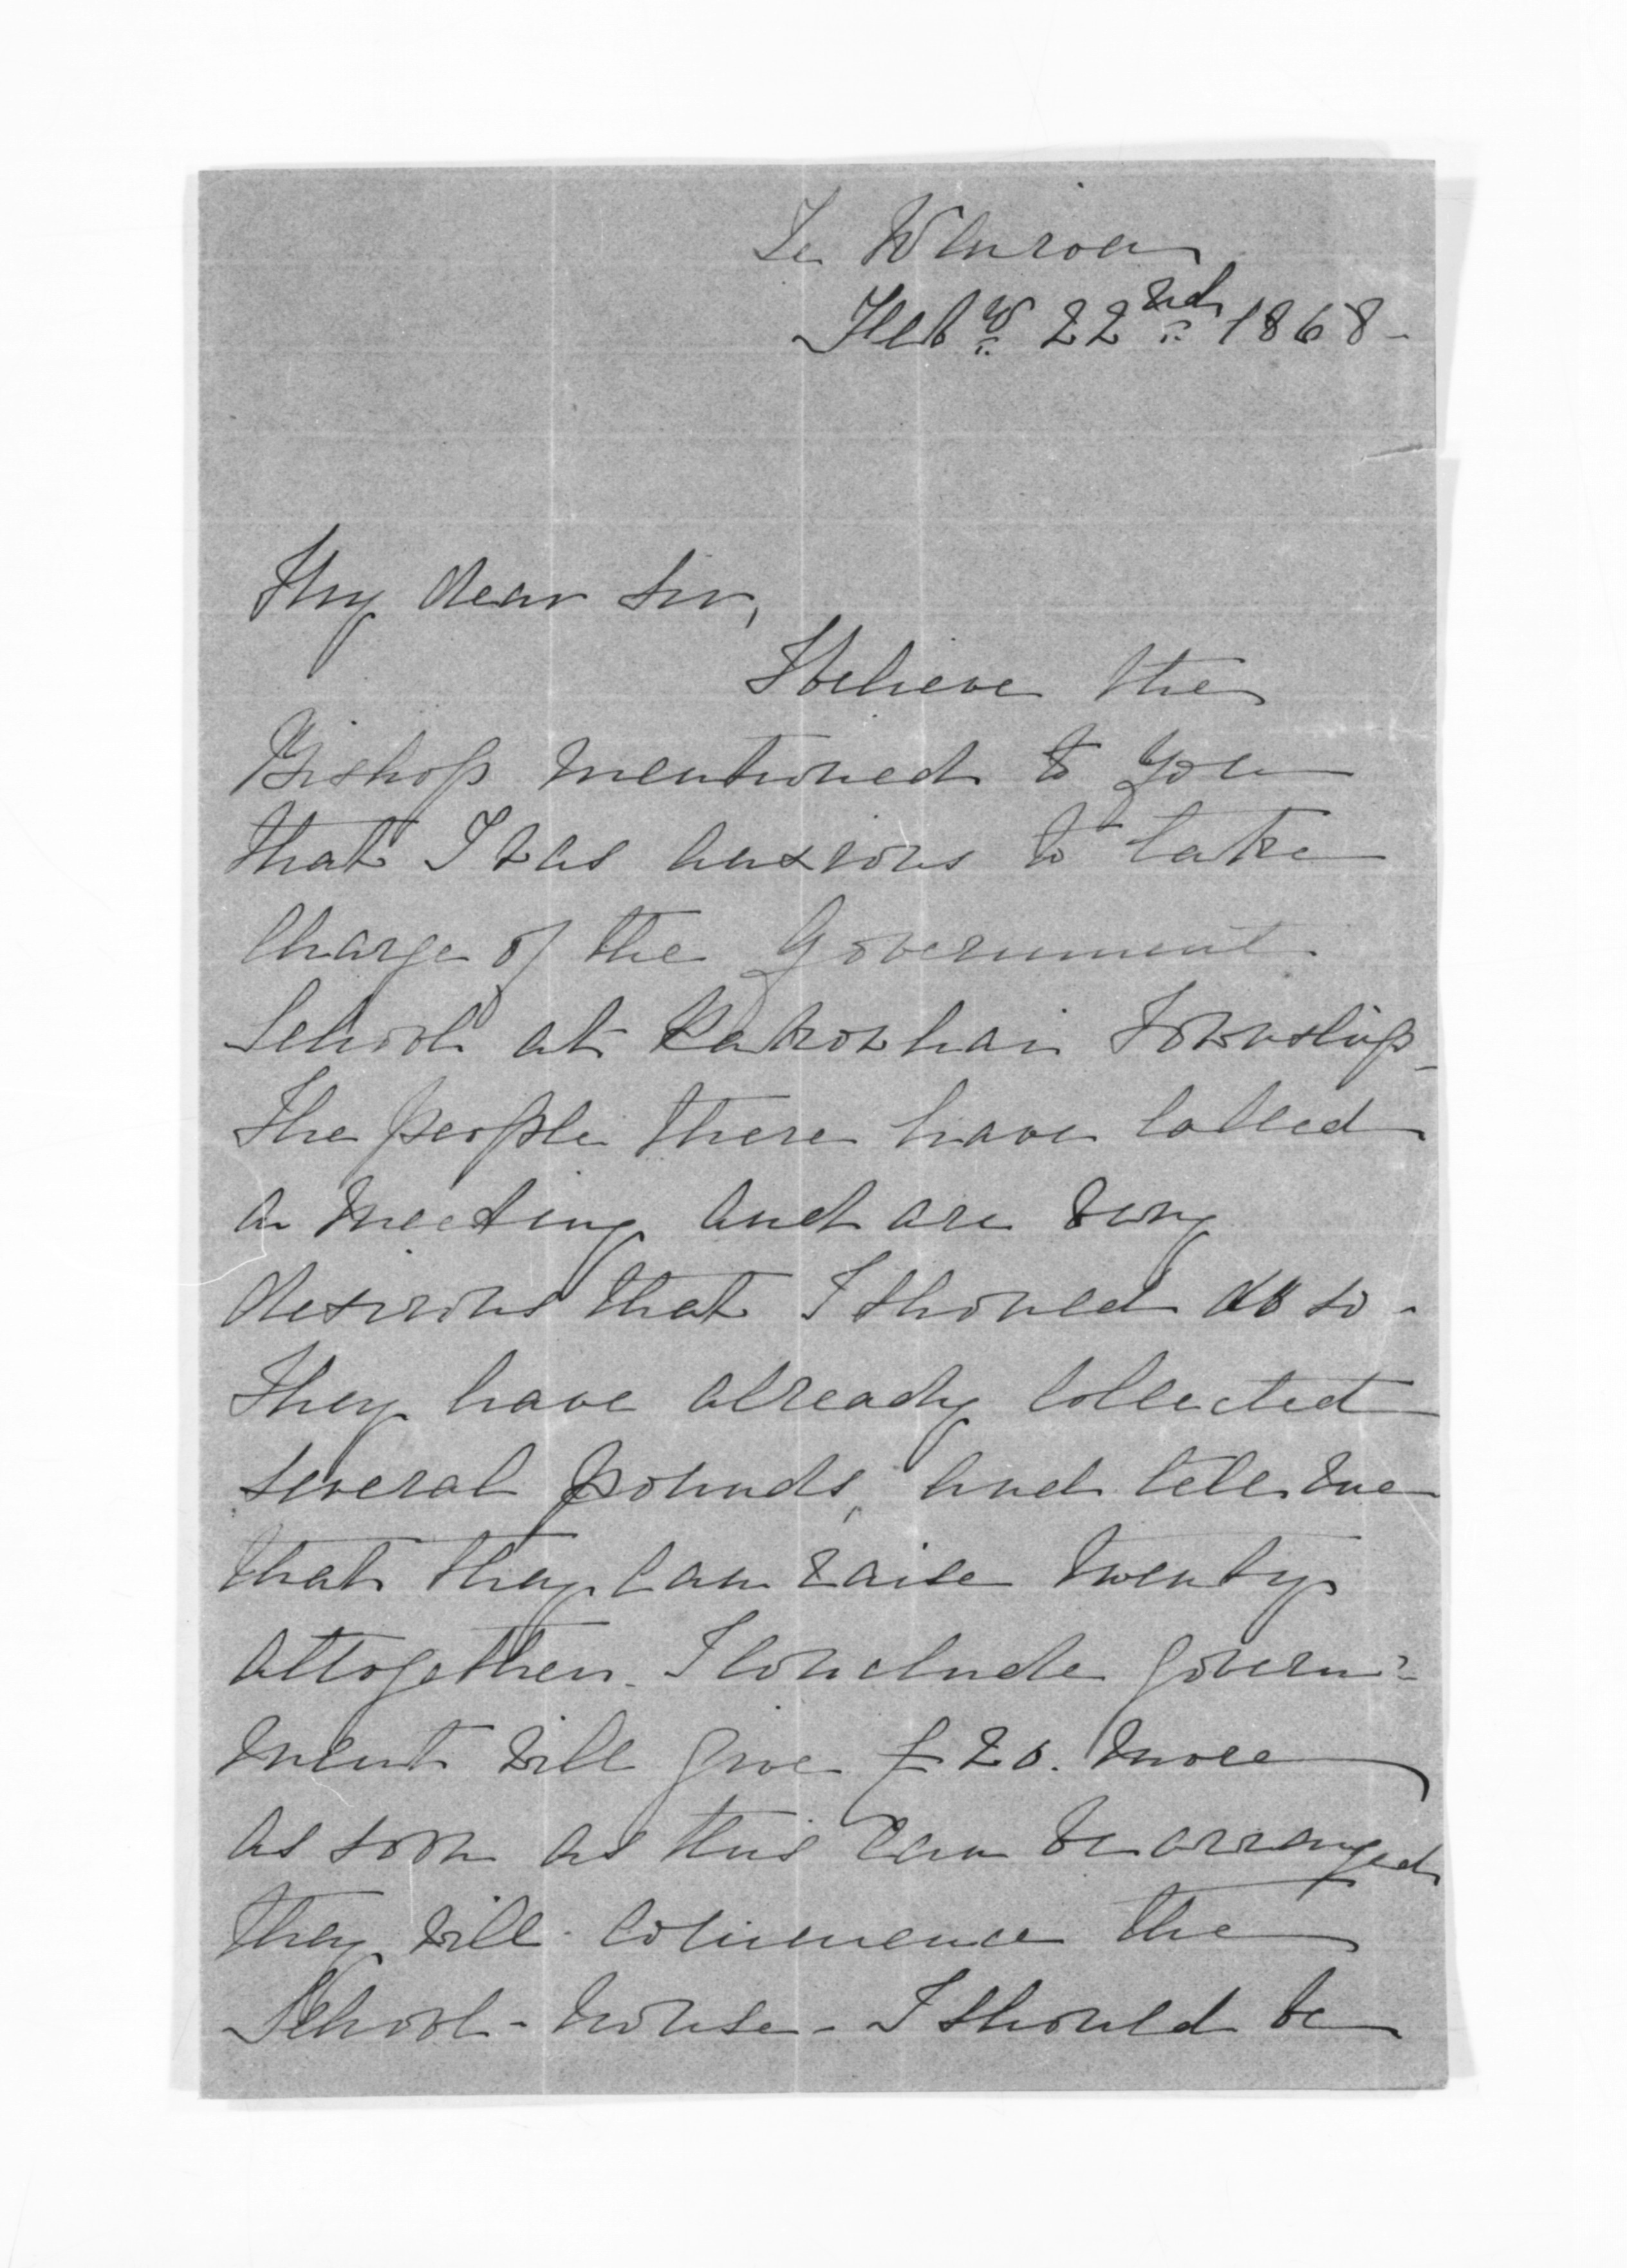 Te Wairoa
Feby 22nd 1868-
My dear Sir,
I believe the
Bishop mentioned to you
that I was anxious to take
charge of the Government
School at Township_
The people there have called
a meeting and are very
desirous that I should do so -
They have already collected
several pounds, and tell me
that they can raise twenty
altogether. I conclude govern=
ment will give £20. more
as soon as this can be arranged
they will commence the
School-house - I should be